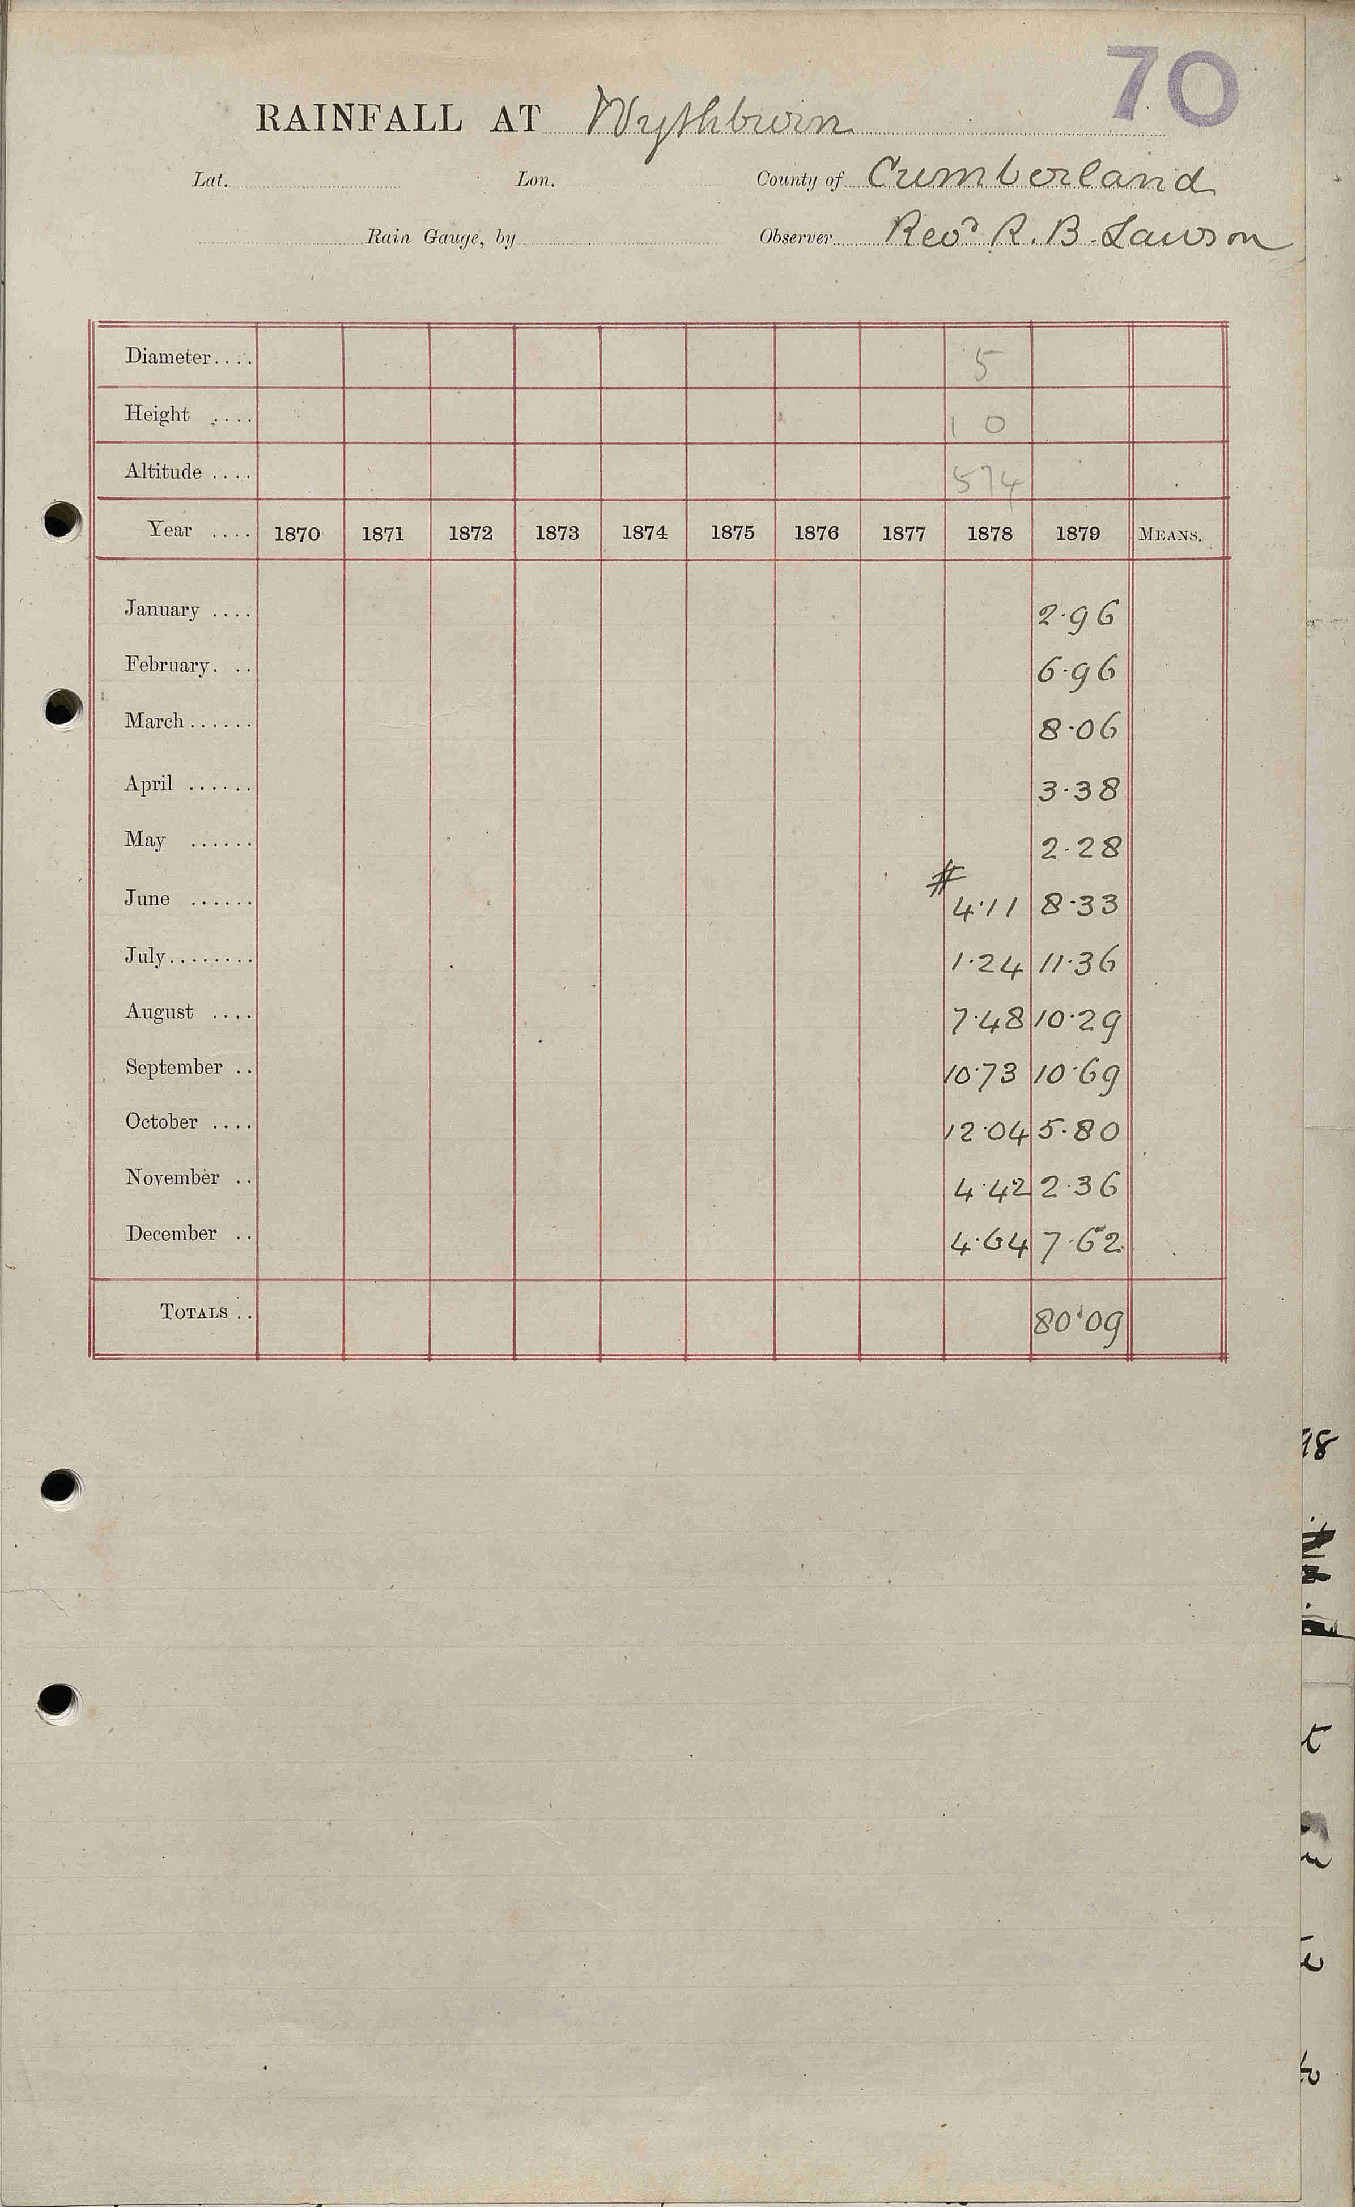 70
RAINFALL AT Wythburn
Lat. Lon. County of Cumberland
Rain Gauge, by Observer Revd R. B. Lawson
Diameter.... 5
Height .... 1 0
Altitude .... 574
Year .... 1870 1871 1872 1873 1874 1875 1876 1877 1878 1879 MEANS.
January .... 2.96
February. .. 6.96
March...... 8.06
April ...... 3.38
May ...... 2.28
#
June ...... 4.11 8.33
July........ 1.24 11.36
August .... 7.48 10.29
September .. 10.73 10.69
October .... 12.04 5.80
November .. 4.42 2.36
December .. 4.64 7.62
TOTALS .. 80.09
98